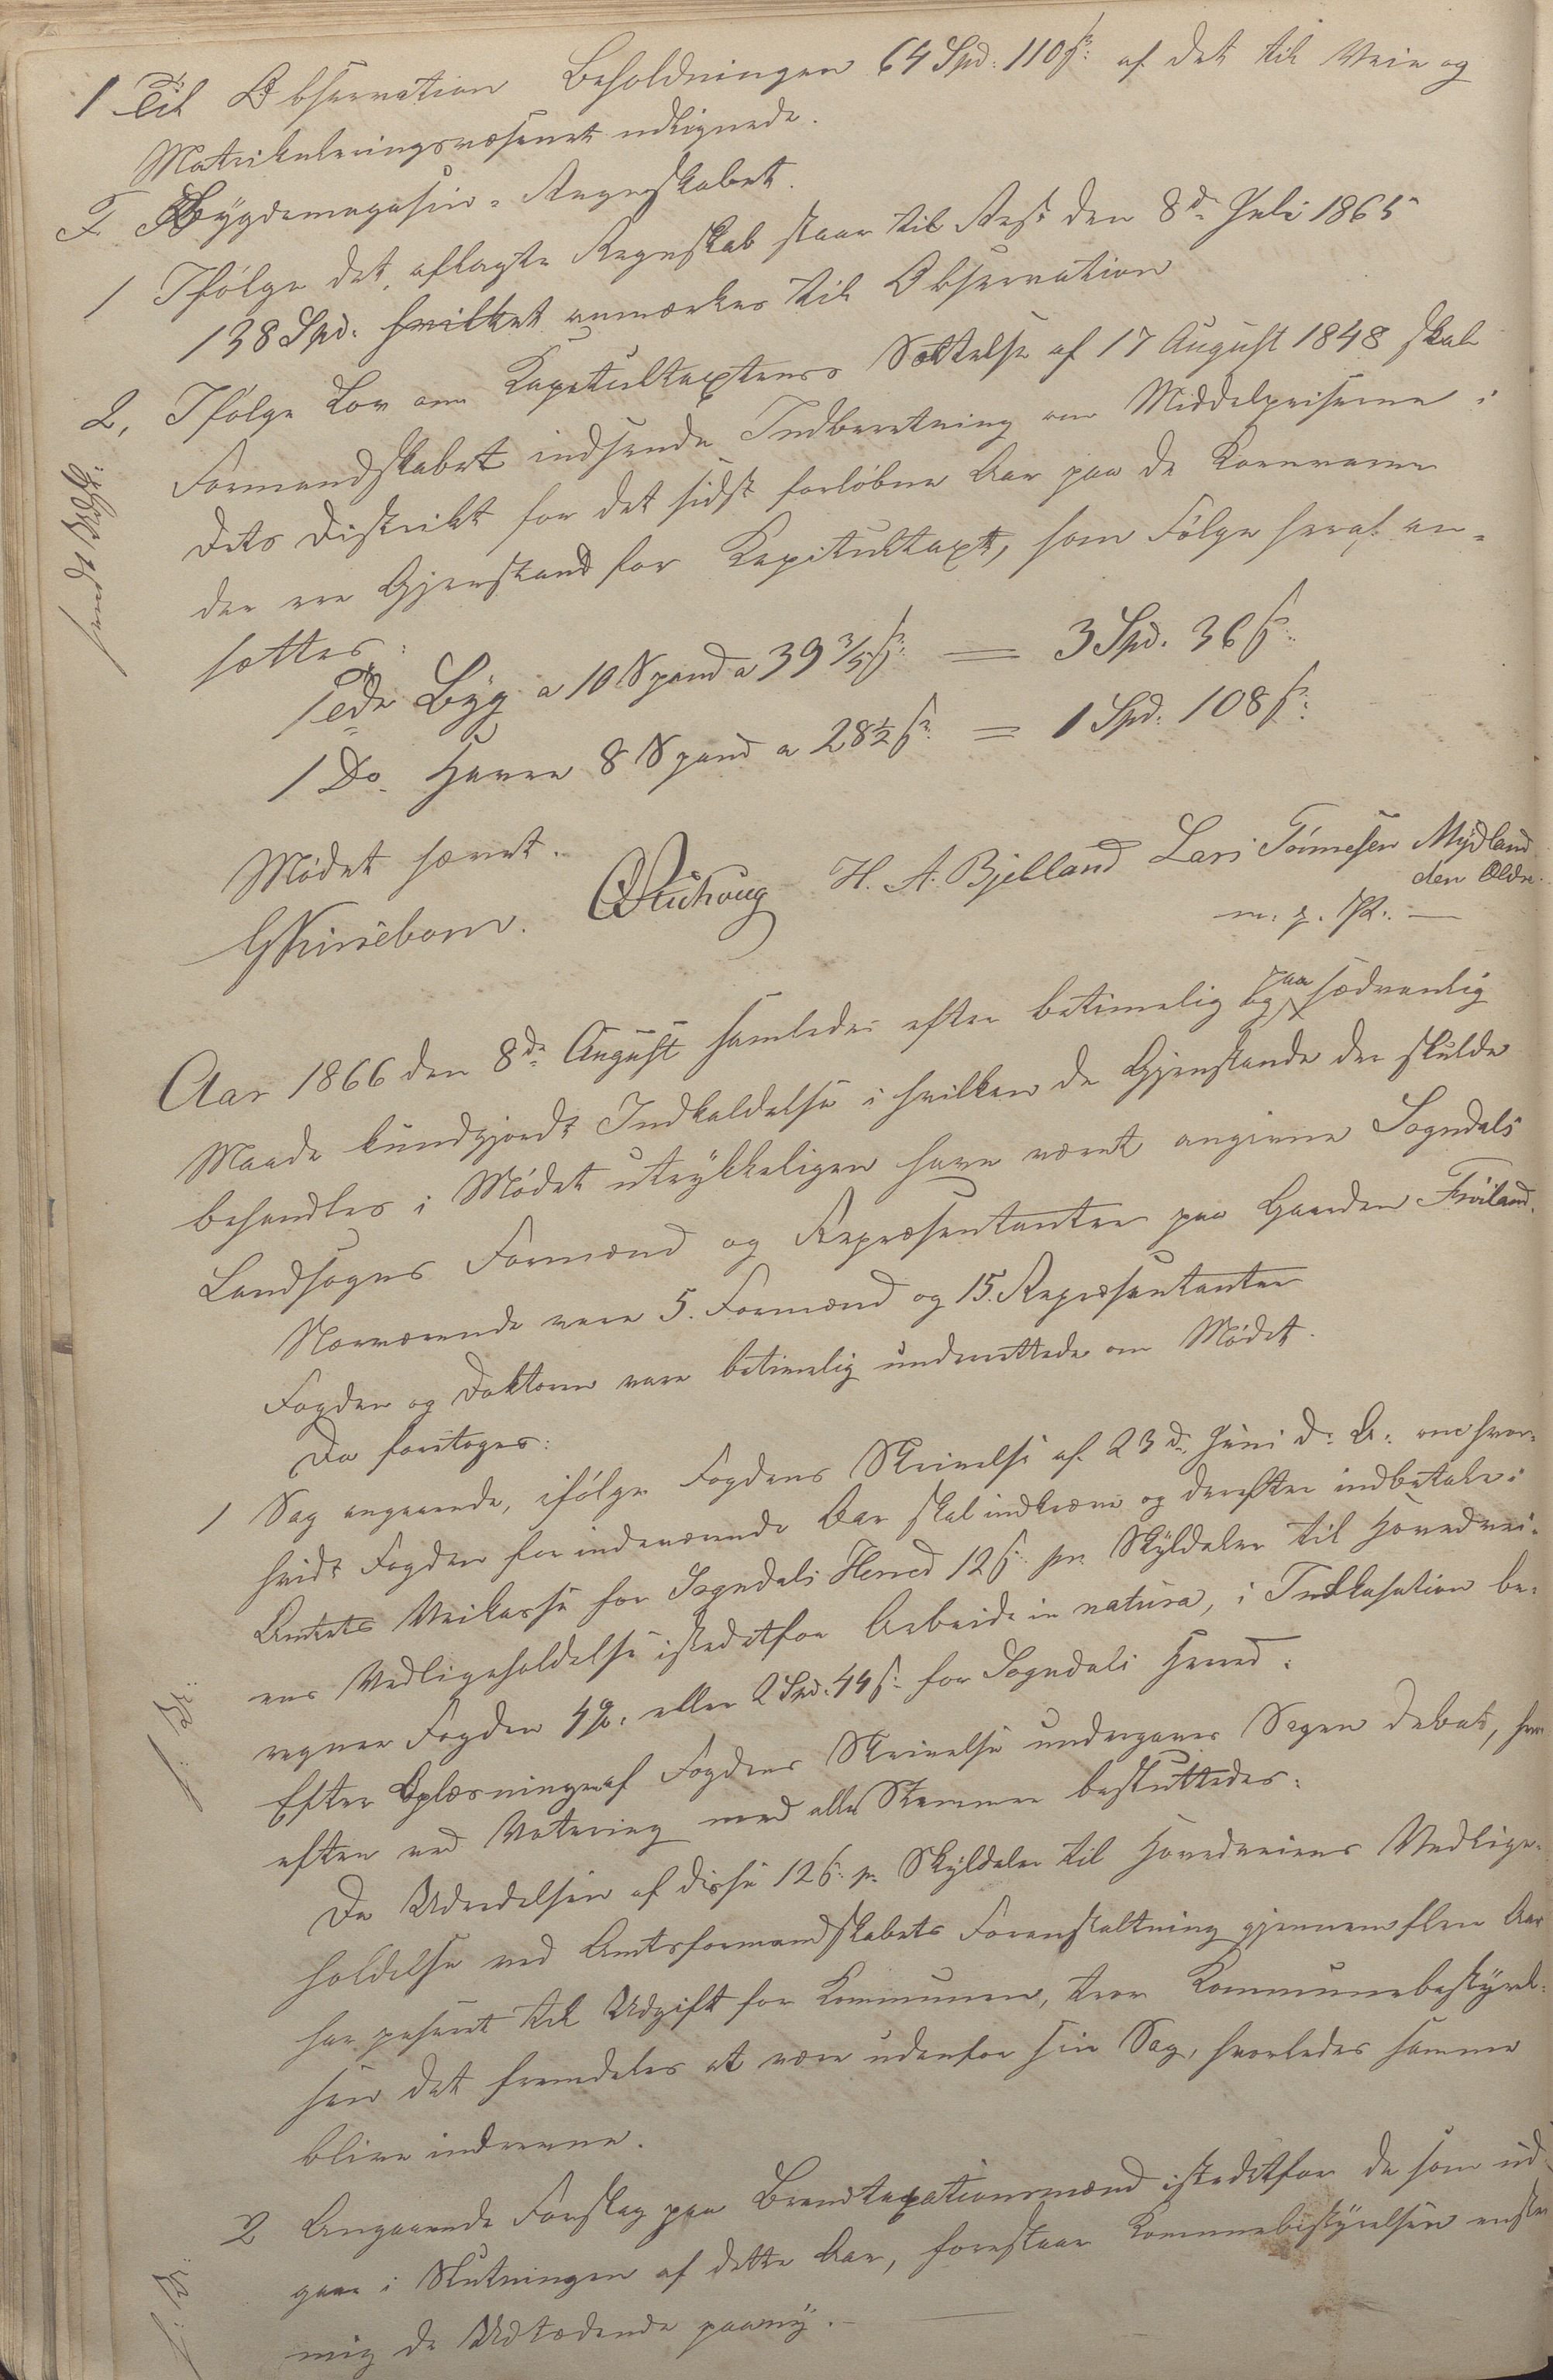 1 Til Observation Beholdningen 64 Spd: 110 ß: af det til Veie og
Matrikuleringsvæsenet udlignede.
F Bygdemagasin-Regnskabet.
1 Ifølge det aflagte Regnskab staar til Rest den 8de Juli 1865
138 Spd. hvilket anmærkes til Observation
2, Ifølge Lov om Kapitultaxtens Sættelse af 17 August 1848 skal
Formandskabet indsende Indberetning om Middelpriserne i
dets Distrikt for det sidst forløbne Aar paa de Kornvarer
der ere Gjenstand for Kapitultaxt, som Følge heraf an-
sættes:
1 Tde Byg a 10 Spand a 39 3/5 ß: = 3 Spd. 36 ß:
1 Do Havre 8 Spand a 28½ ß: = 1 Spd: 108 ß:
Mødet hævet.
H. A. Bjelland Lars Tønnesen Mydland
den Eldre.
m. p. P.
Aar 1866 den 8de August samledes efter betimelig og paa sædvanlig
Maade kundgjordt Indkaldelse i hvilken de Gjenstande der skulde
behandles i Mødet utrykkeligen have været angivne Sogndals
Landsogns Formænd og Repræsentanter paa Gaarden Frøiland.
Nærværende vare 5. Formænd og 15. Repræsentanter
Fogden og Doktoren vare betimelig underrettede om Mødet.
Da foretoges:
1 Sag angaaende, ifølge Fogdens Skrivelse af 23de Juni d: A: om hvor-
vidt Fogden for indeværende Aar skal indkræve og derefter indbetale i
Amtets Veikasse for Sogndals Herred 12 ß pr: Skyldaler til Hovedvei-
ens Vedligeholdelse istedetfor Arbeide in natura, i Indkasation be-
regner Fogden 4%. eller 2 Spd. 44 ß: for Sogndals Herred.
Efter Oplæsningen af Fogdens Skrivelse undergaves Sagen Debat, hvor
efter ved Votering med alle Stemmer besluttedes:
Da Udredelsen af disse 12 ß: pr Skyldaler til Hovedveiens Vedlige-
holdelse ved Amtsformandskabets Foranstaltning gjennem flere Aar
har paseret til Udgift for Kommunen, troer Kommunebestyrel-
sen det fremdeles at være udenfor sin Sag, hvorledes samme
blive inddrevne.
2 Angaaende Forslag paa Brandtaxationsmænd istedetfor de som ud-
gaar i Slutningen af dette Aar, foreslaar Kommunebestyrelsen enstem
mig de Udtrædende paany.